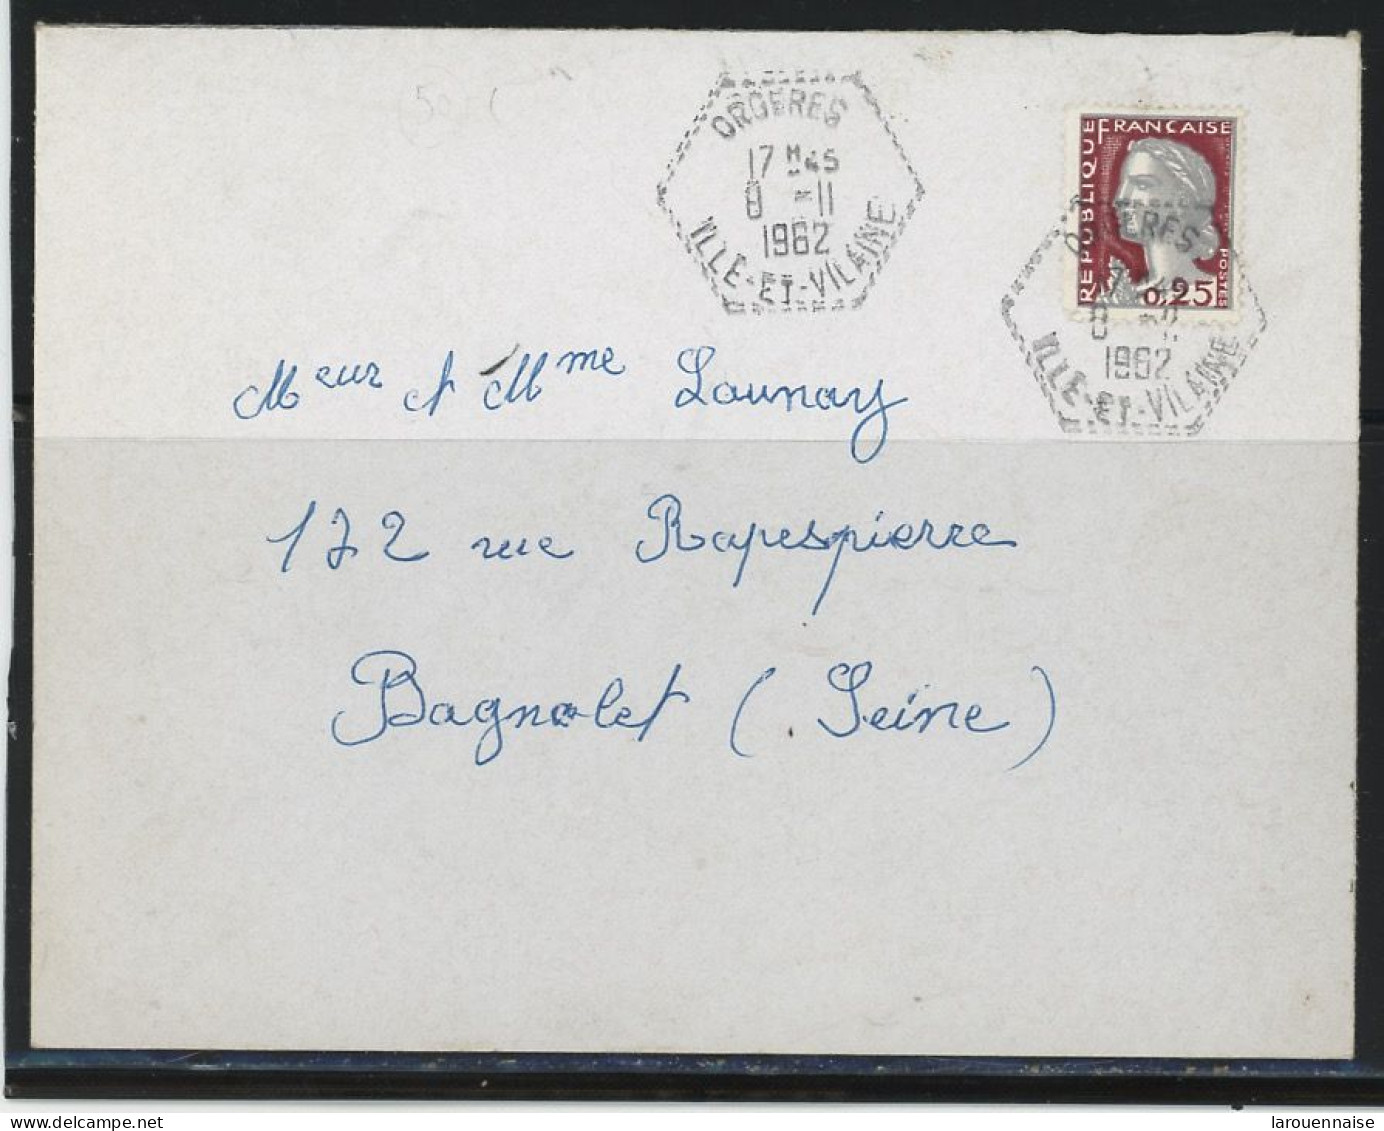 ORGERES
17 H 45
8 - 11
1962
ILLE-ET-VILAINE
REPUBLIQUE FRANCAISE
POSTES
0,25
ORGERES
8 - 11
1962
ILLE-ET-VILAINE
Meur et Mme Launay
172 rue Rapespierre
Bagnolet (Seine)
larouennaise